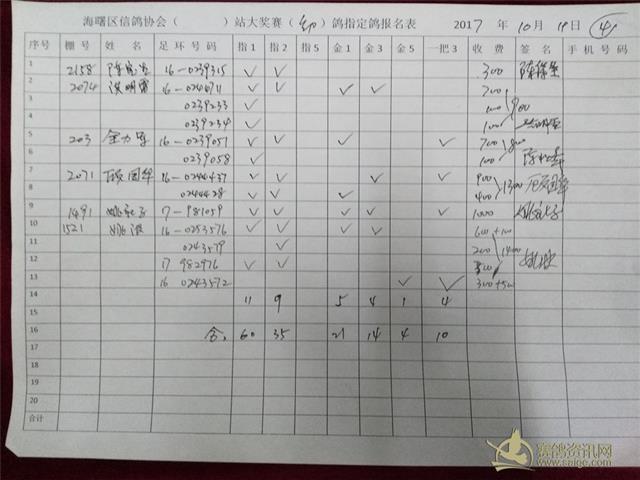 海曙区信鸽协会（ ）站大奖赛（ ）鸽指定鸽报名表 2017 年 10 月 19 日 (4)
序号 棚号 姓 名 足 环 号 码 指1 指2 指5 金1 金3 金5 一把3 收 费 签 名 手 机 号 码
1 2158 16-0239315 ✓ ✓ 300
2 2074 洪明雷 16-0244711 ✓ ✓ ✓ ✓ 700
3 0239233 ✓ 100 900
4 0239234 ✓ 100
5 203 16-0239051 ✓ ✓ ✓ ✓ 700 800
6 0239058 ✓ 100
7 2071 国华 16-0244437 ✓ ✓ ✓ ✓ 900 1300
8 0244428 ✓ ✓ ✓ 400
9 1491 17-981059 ✓ ✓ ✓ ✓ ✓ 1000
10 1521 16-0253576 ✓ ✓ ✓ ✓ 600+100
11 0243579 ✓ 200 1400
12 17 982976 ✓ ✓
13 16 0243572 ✓ ✓ 300+500
14 11 9 5 4 1 4
15
16 合: 60 35 21 14 4 10
17
18
19
20
合计
赛鸽资讯网
www.saige.com